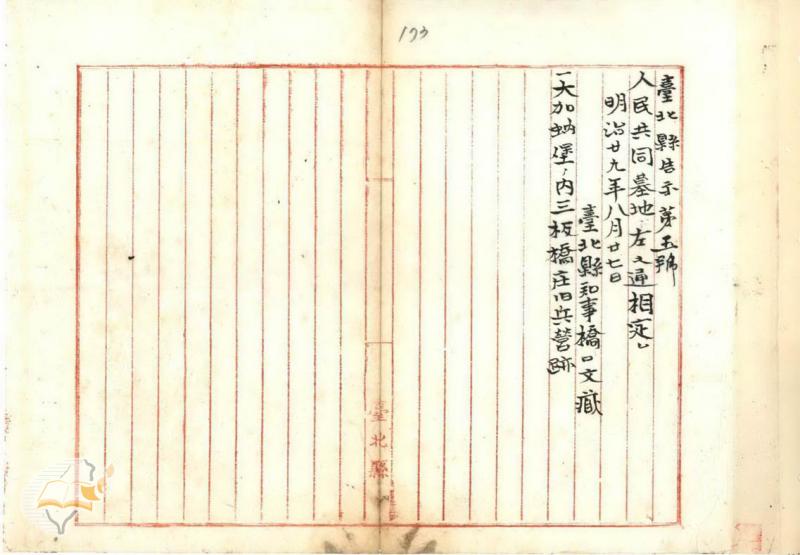 173
臺北縣告示第五號
人民共同墓地左ノ通相定ム
明治廿九年八月廿七日
臺北縣知事橋口文蔵
一大加蚋堡ノ内三板橋庄旧兵營跡
臺北縣